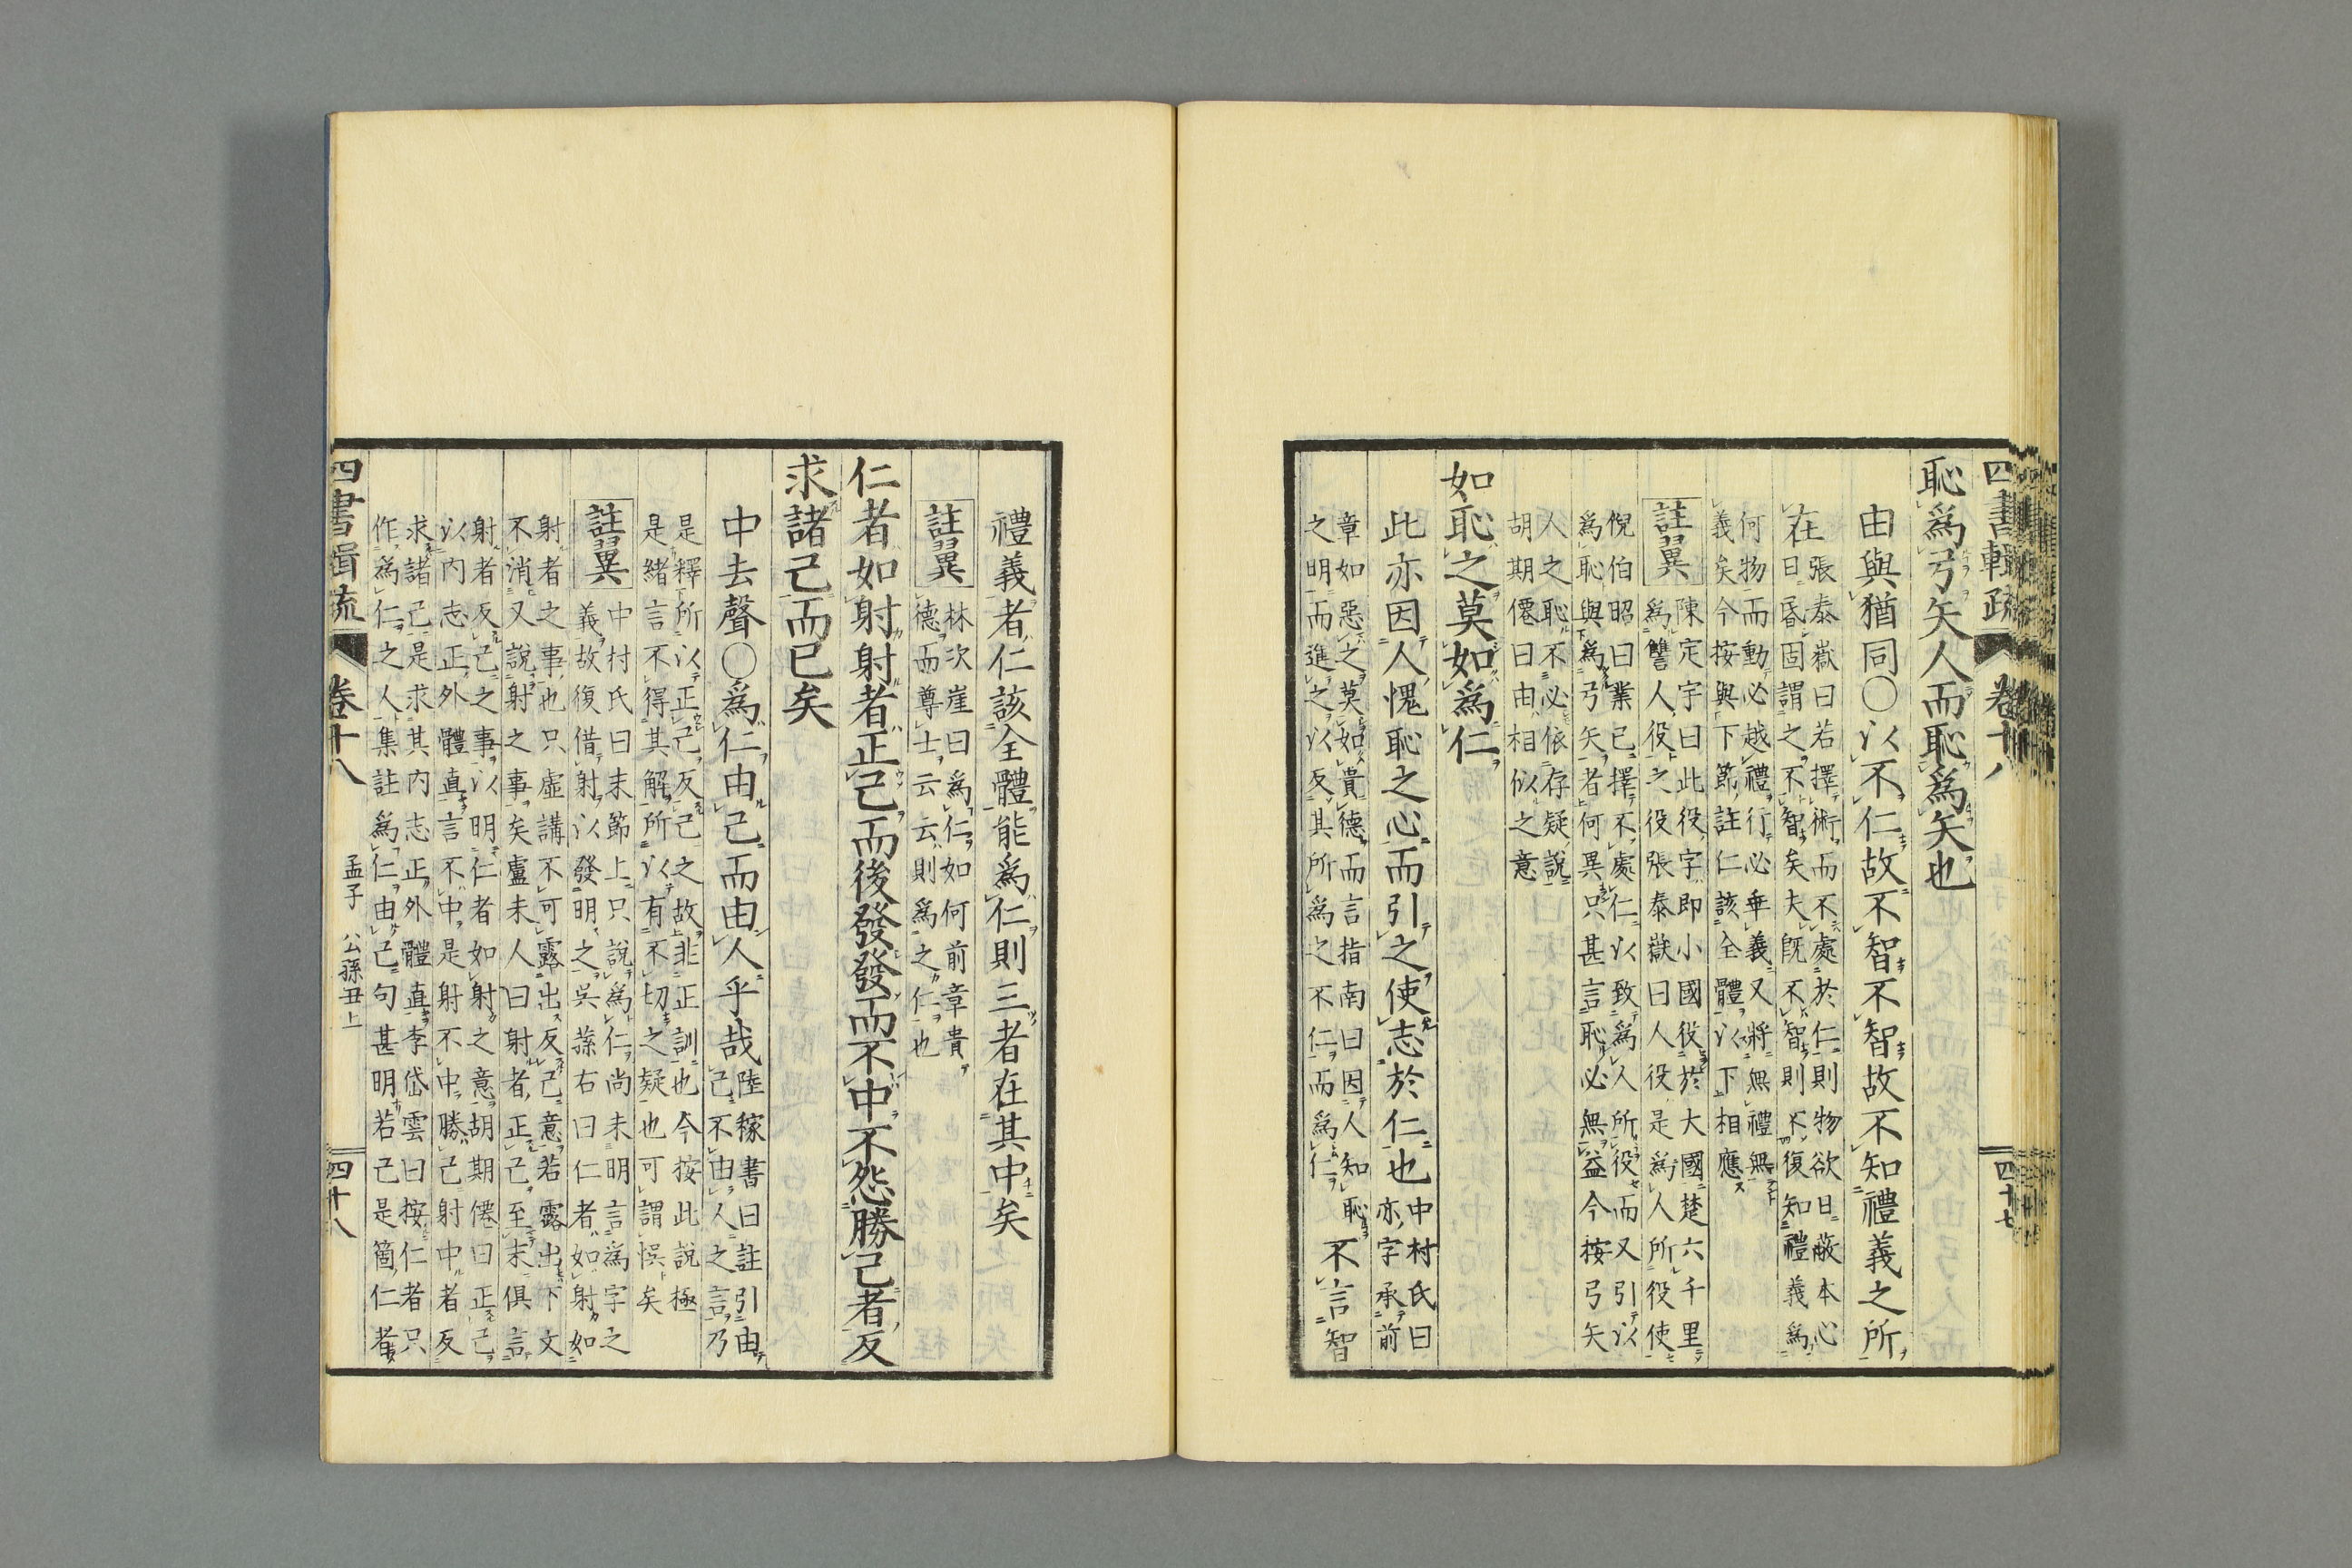 四書輯疏 卷十八 四十七
恥爲弓矢人而恥爲矢也
由與猶同〇以不仁故不智不智故不知禮義之所
在
張泰嶽曰若擇術而不處於仁則物欲日蔽本心
日昏固謂之不智矣夫既不智則不復知禮義爲
何物而動必越禮行必乖義又將無禮無
義矣今按與下節註仁該全體以下相應
註翼
陳定宇曰此役字即小國役於大國楚六千里
爲讐人役之役張泰嶽曰人役是爲人所役使
倪伯昭曰業已擇不處仁以致爲人所役而又引以
爲恥與爲弓矢者何異只甚言恥必無益今按弓矢
人之恥不必依存疑說
胡期僊曰由相似之意
如恥之莫如爲仁
此亦因人愧恥之心而引之使志於仁也
中村氏曰
亦字承前
章如惡之莫如貴德而言指南曰因人知恥
之明而進之以反其所爲之不仁而爲仁
不言智
禮義者仁該全體能爲仁則三者在其中矣
註翼
林次崖曰爲仁如何前章貴
德而尊士云云則爲之仁也
仁者如射射者正己而後發發而不中不怨勝己者反
求諸己而已矣
中去聲〇爲仁由己而由人乎哉
陸稼書曰註引由
己不由人之言乃
是釋所以正己反己之故非正訓也今按此說極
是緒言不得其解所以有不切之疑也可謂悞矣
註翼
中村氏曰末節上只說爲仁尚未明言爲字之
義故復借射以發明之吳蓀右曰仁者如射如
射者之事也只虛講不可露出反己意若露出下文
不消又說射之事矣盧未人曰射者正己至末俱言
射者反己之事以明仁者如射之意胡期僊曰正己
以內志正外體直言不中是射不中勝己射中者反
求諸己是求其內志正外體直李岱雲曰按仁者只
作爲仁之人集註爲仁由己句甚明若己是箇仁者
四書輯疏 卷十八 孟子 公孫丑上 四十八